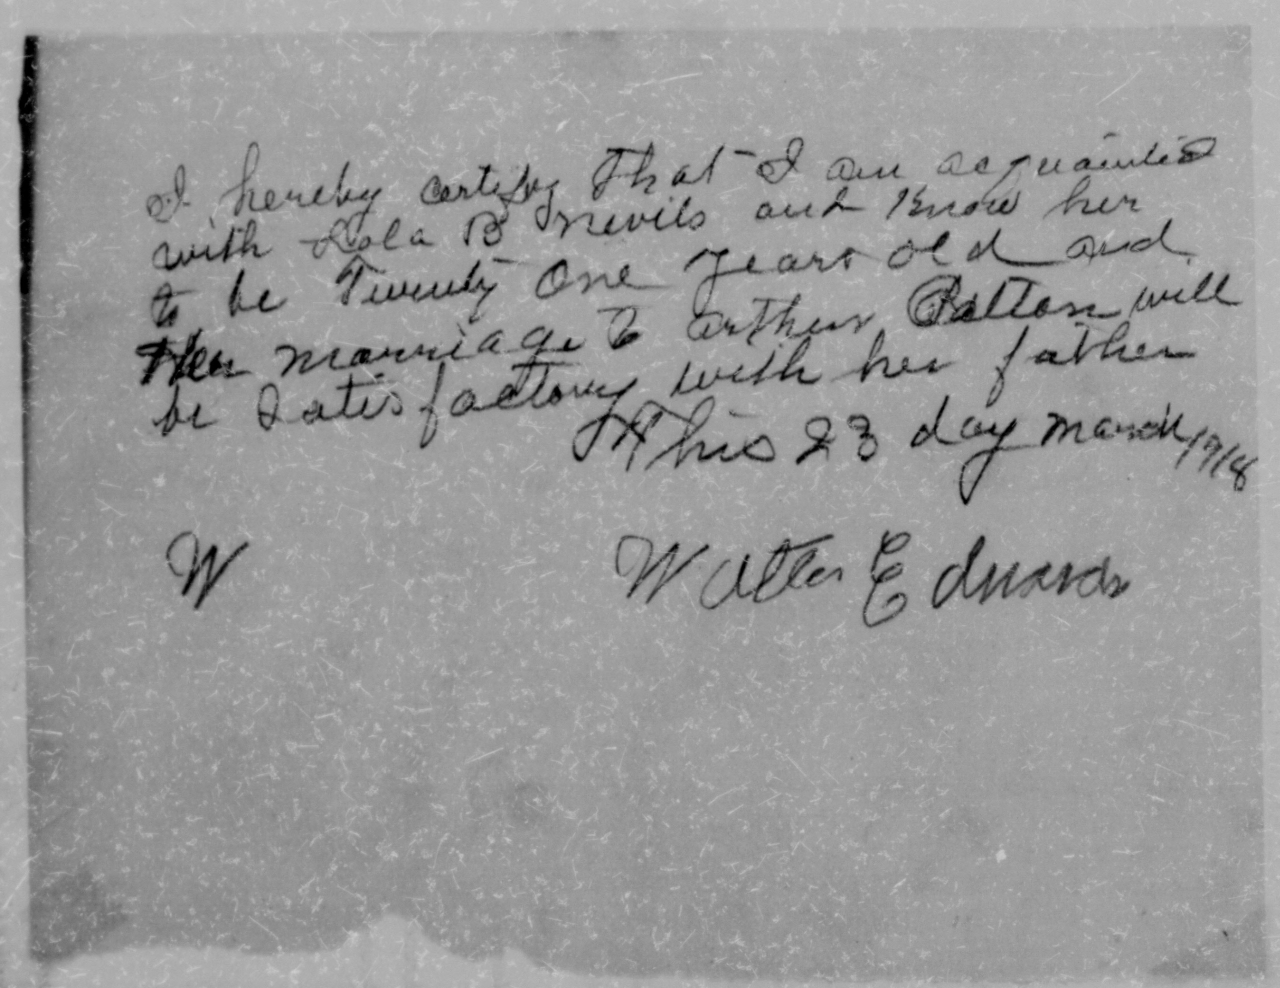 I hereby certify that I am acquainted
with Lola B Nevils and Know her
to be Twenty One years old and
Her marriage to Arthur Patton will
be Satisfactory with her father
This 23 day march 1918
W Walter Edwards